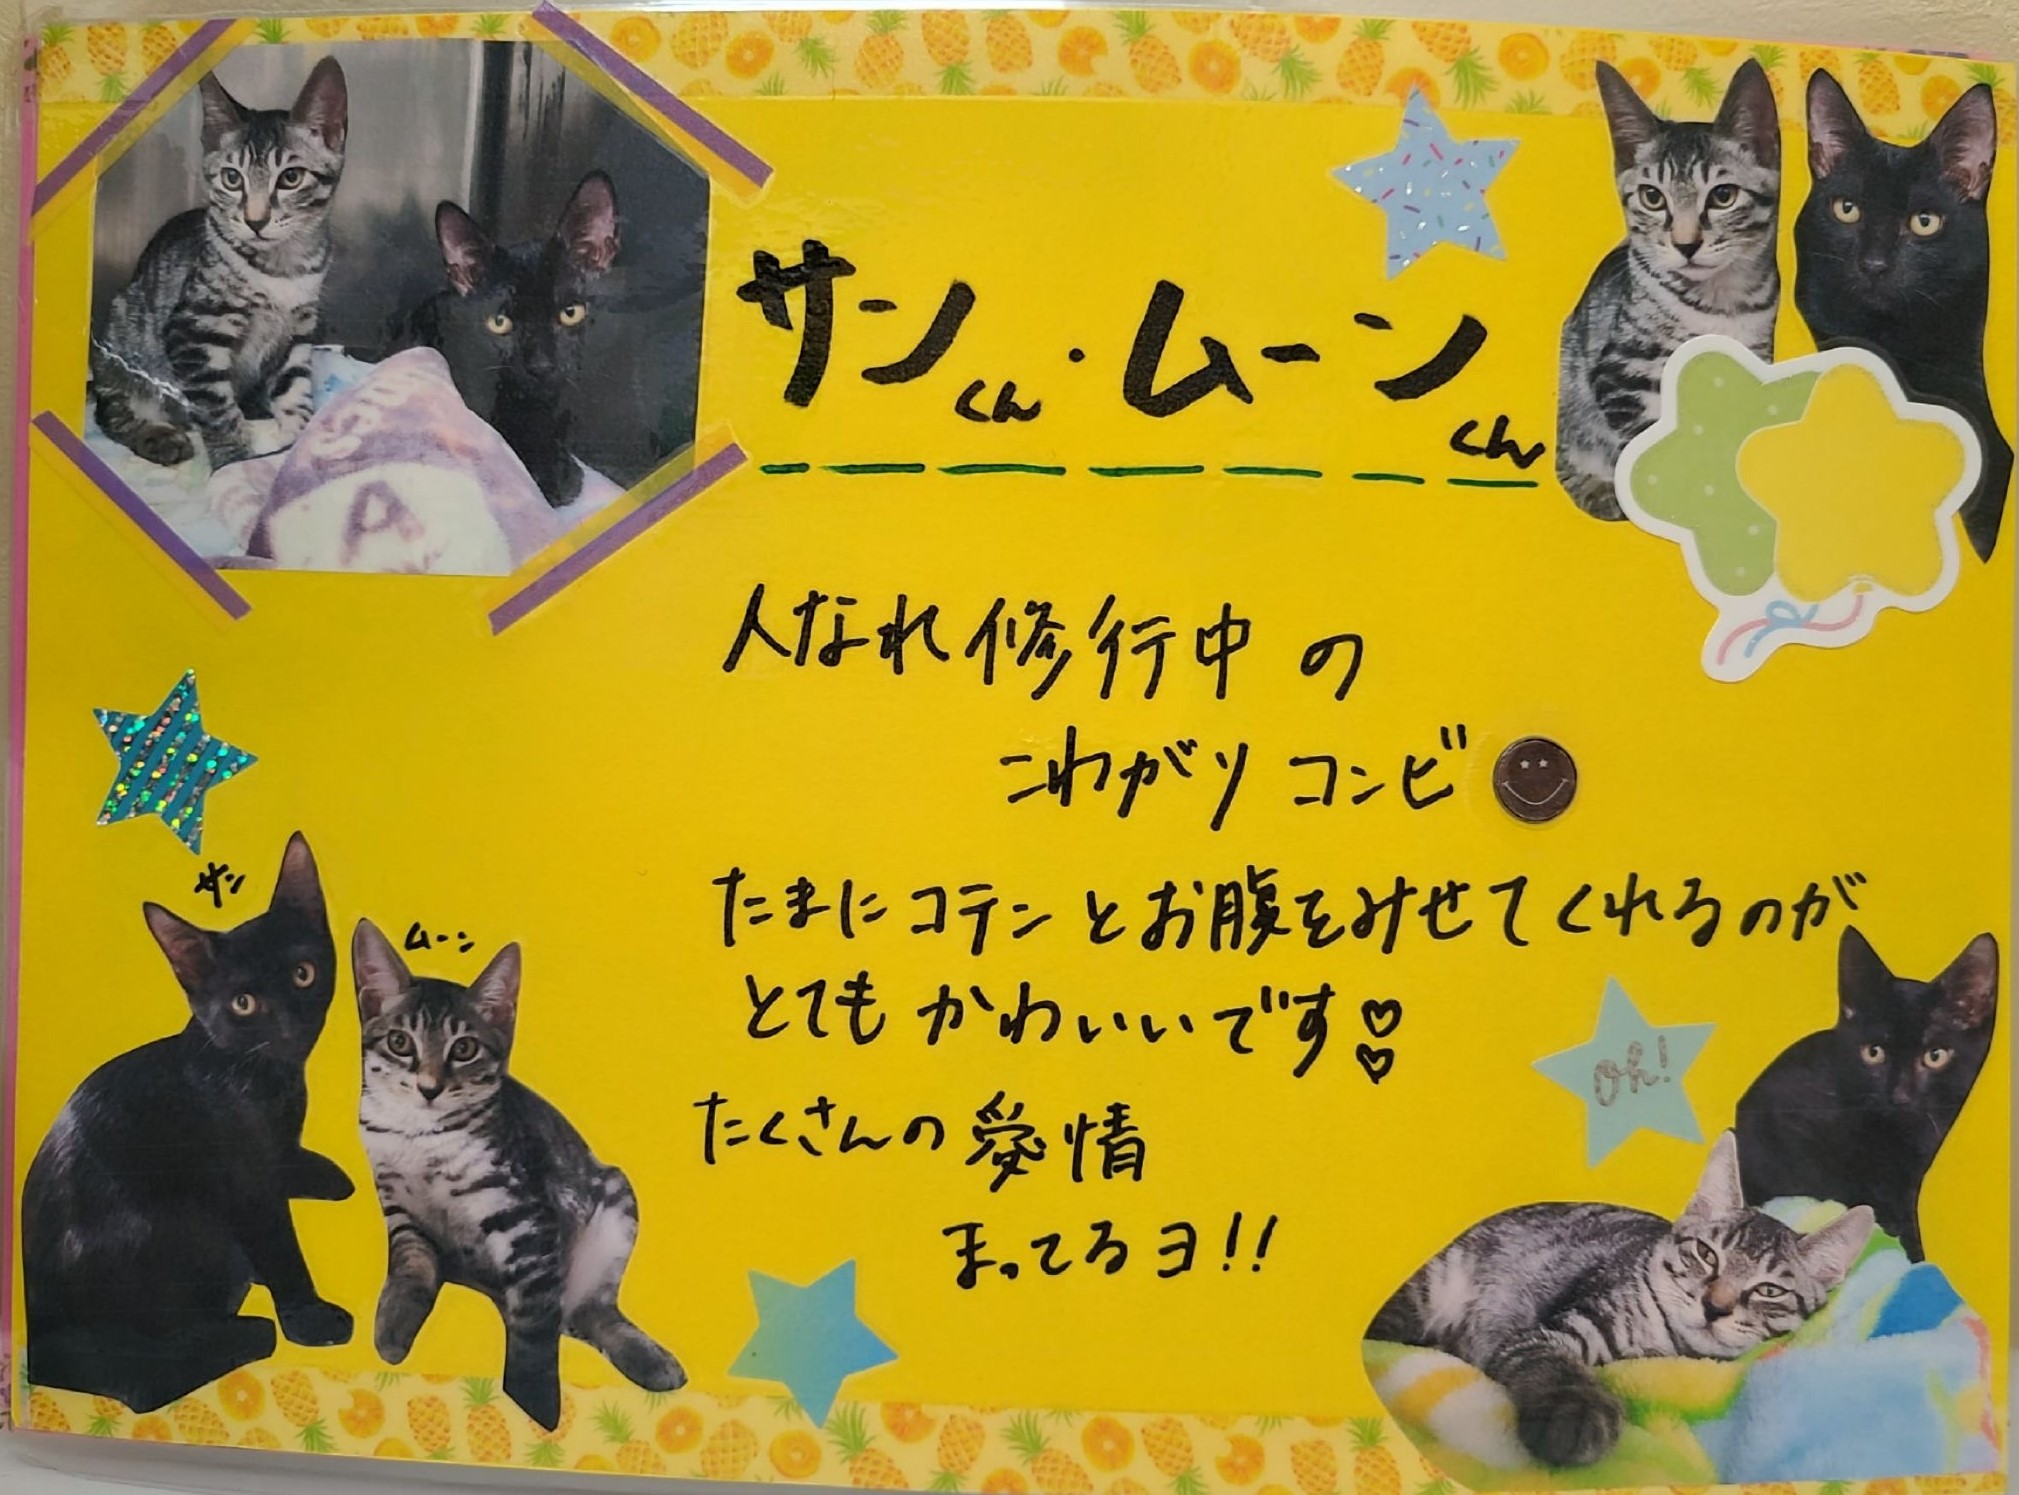 サンくん・ムーンくん
人なれ修行中の
こわがりコンビ
たまにコテンとお腹をみせてくれるのが
とてもかわいいです
たくさんの愛情
まってるヨ!!
サン
ムーン
oh!